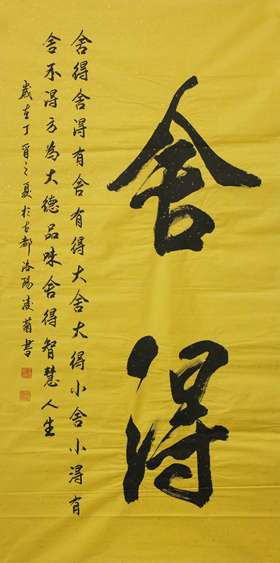 舍得
舍得舍得有舍有得大舍大得小舍小得有
舍不得方为大德品味舍得智慧人生
岁在丁酉之夏于古都洛阳凌菊书